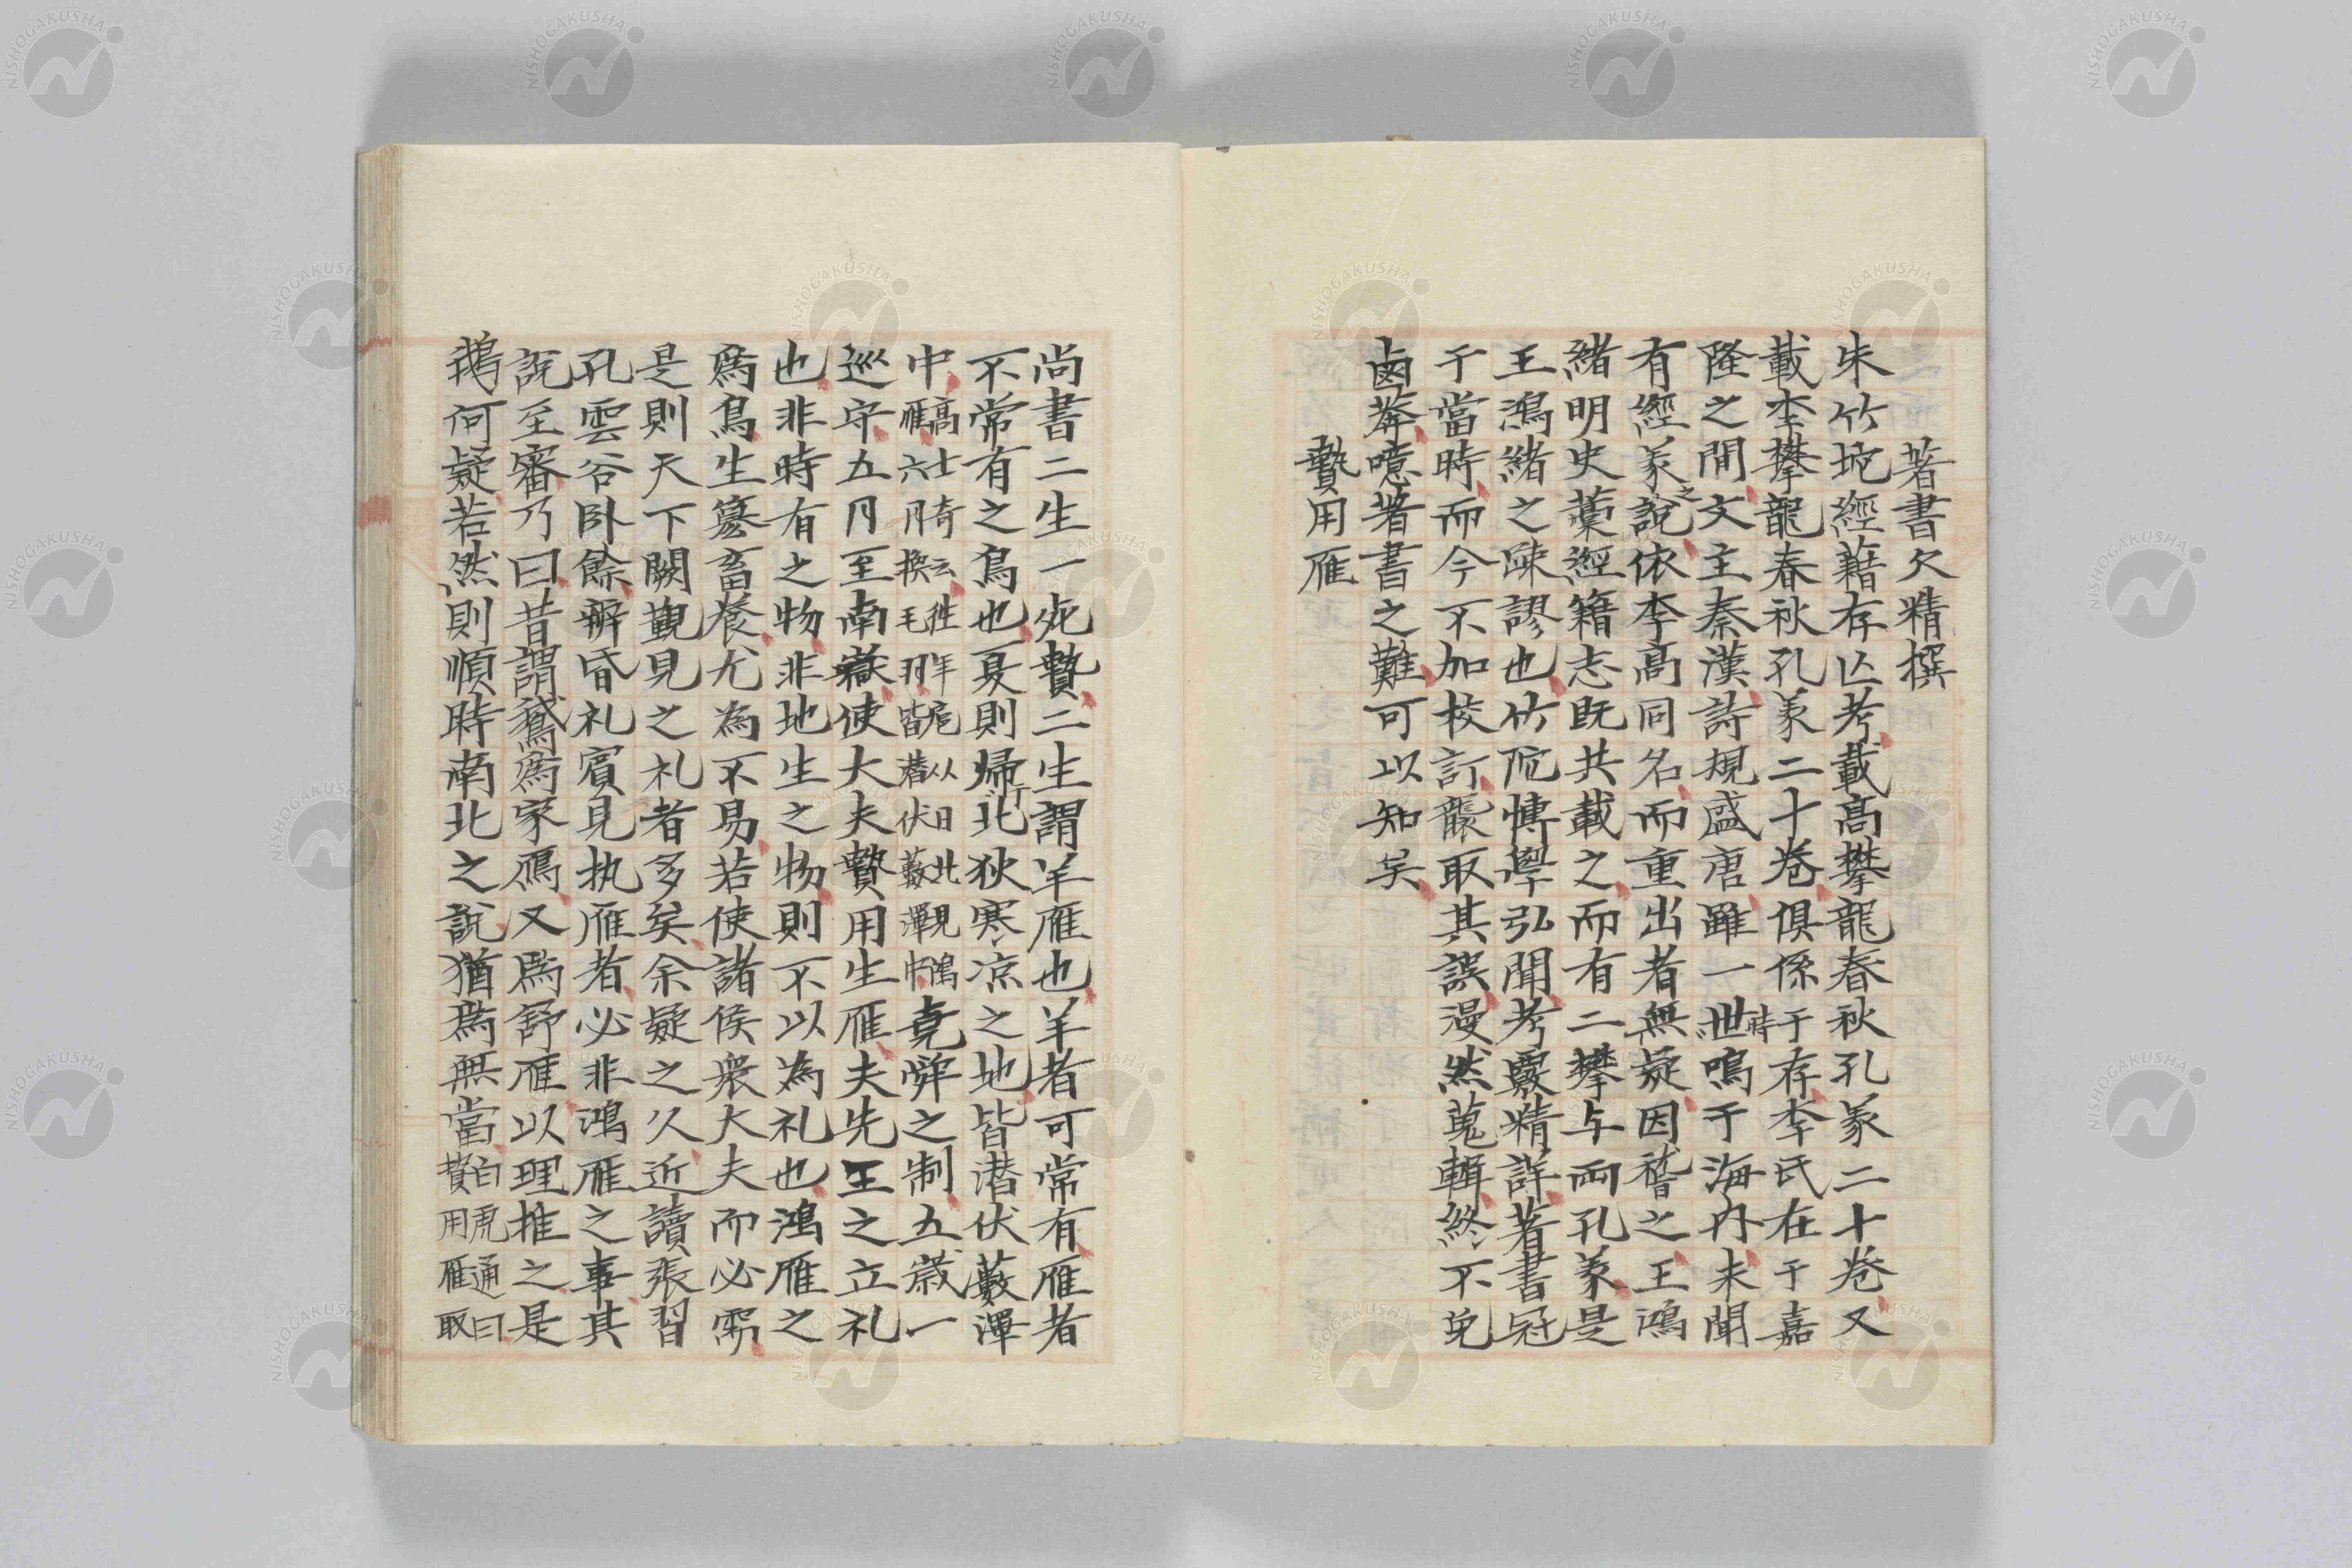 著書欠精撰
朱竹垞經籍存亾考載高攀龍春秋孔義二十卷又
載李攀龍春秋孔義二十卷俱係于存李氏在于嘉
時
隆之間文主秦漢詩規盛唐雖一世鳴于海内未聞
之
有經義說依李高同名而重出者無疑因稽之王鴻
緒明史藁經籍志既共載之而有二攀与兩孔義是
王鴻緒之踈謬也竹陀博學弘聞考覈精詳著書冠
于當時而今不加校訂襲取其誤漫然蒐輯終不免
鹵莽噫著書之難可以知矣
贄用雁
尚書二生一死贄二生謂羊雁也羊者可常有雁者
行
不常有之鳥也夏則歸北狄寒凉之地皆潜伏藪澤
中高士奇云徃年扈从日北見鴻雁六月換毛羽皆潜伏藪澤中堯舜之制五歲一
巡守五月至南嶽使大夫贄用生雁夫先王之立礼
也非時有之物非地生之物則不以為礼也鴻雁之
爲鳥生擒畜養尤為不易若使諸侯衆大夫而必需
是則天下闕覲見之礼者多矣余疑之久近讀張習
孔雲谷卧餘辨昏礼賓見执雁者必非鴻雁之事其
說至審乃曰昔謂鵞爲家鴈又爲舒雁以理推之是
鵝何疑若然則順時南北之說猶爲無當白虎通曰贄用雁取
NISHOGAKUSHA